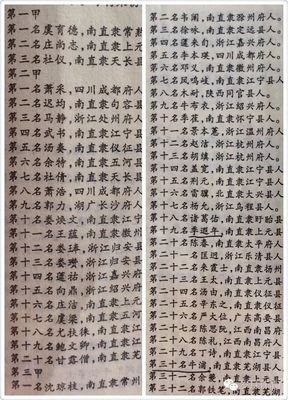 第一甲
第一名虞育德，南直隶常熟
第二名庄尚志，南直隶上元
第三名杜仪，南直隶天长县
第二甲
第一名萧采，四川成都府人
第二名迟均，南直隶句容县
第三名马静，浙江处州府人
第四名武书，南直隶江宁县
第五名汤奏，南直隶仪征县
第六名余特，南直隶五河县
第七名杜倩，南直隶天长县
第八名萧浩，四川成都府人
第九名郭力，湖广长沙府人
第十名娄焕文，南直隶江宁
第十一名王蕴，南直隶徽州
第十二名娄琫，浙江归安县
第十三名娄瓒，浙江归安县
第十四名蘧祐，浙江嘉兴府
第十五名向鼎，浙江绍兴府
第十六名庄洁，南直隶上元
第十七名虞梁，南直隶五河
第十八名尤扶徕，南直隶江
第十九名鲍文卿，南直隶江
第二十名甘露僧，南直隶芜
第三甲
第一名沈琼枝，南直隶常州
第二名韦阐，南直隶滁州府人。
第三名徐咏，南直隶定远县人。
第四名蘧来旬，浙江嘉兴府人。
第五名李本瑛，四川成都府人。
第六名邓义，南直隶徽州府人。
第七名凤鸣岐，南直隶江宁县人。
第八名木耐，陕西同官县人。
第九名牛布衣，浙江绍兴府人。
第十名季萑，南直隶怀宁县人。
第十一名景本蕙，浙江温州府人。
第十二名赵洁，浙江杭州府人。
第十三名胡缜，浙江杭州府人。
第十四名盖宽，南直隶江宁县人
第十五名荆元，南直隶江宁县人
第十六名雷骥，北直隶大兴县人
第十七名杨允，浙江乌程县人。
第十八名诸葛佑，南直隶盱眙县
第十九名季遐年，南直隶上元县
第二十名陈春，南直隶太平府人
第二十一名匡迥，浙江乐清县人
第二十二名来霞士，南直隶扬州
第二十三名王太，南直隶上元县
第二十四名汤由，南直隶仪征县
第二十五名辛东之，南直隶仪征
第二十六名严大位，广东高要县
第二十七名陈思阮，江西南昌府
第二十八名陈礼，江西南昌府人
第二十九名丁诗，南直隶江宁县
第三十名牛浦，南直隶芜湖县人
第三十一名余夔，南直隶上元县
第三十二名郭铁笔，南直隶芜湖